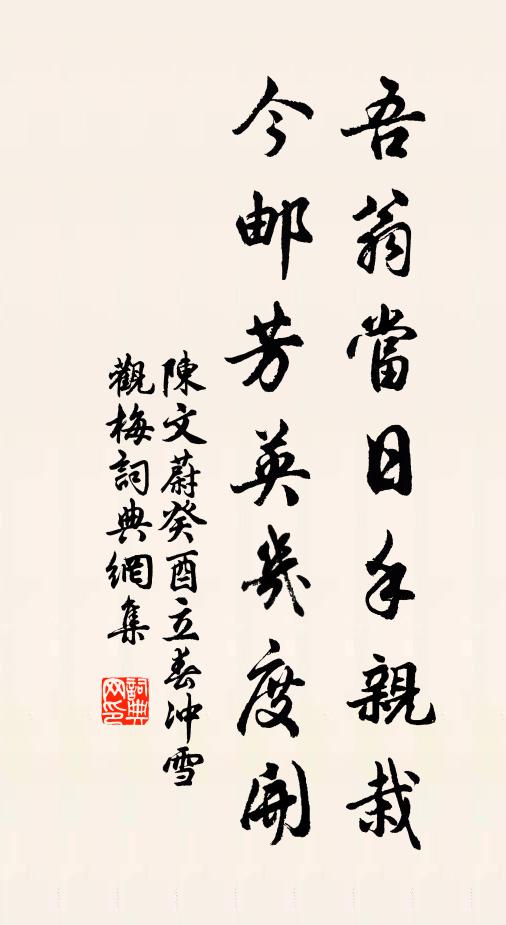 吾翁當日手親栽
今邮芳英幾度開
陳文蔚癸酉立春冲雪
觀梅詞典網集
詞典
网印